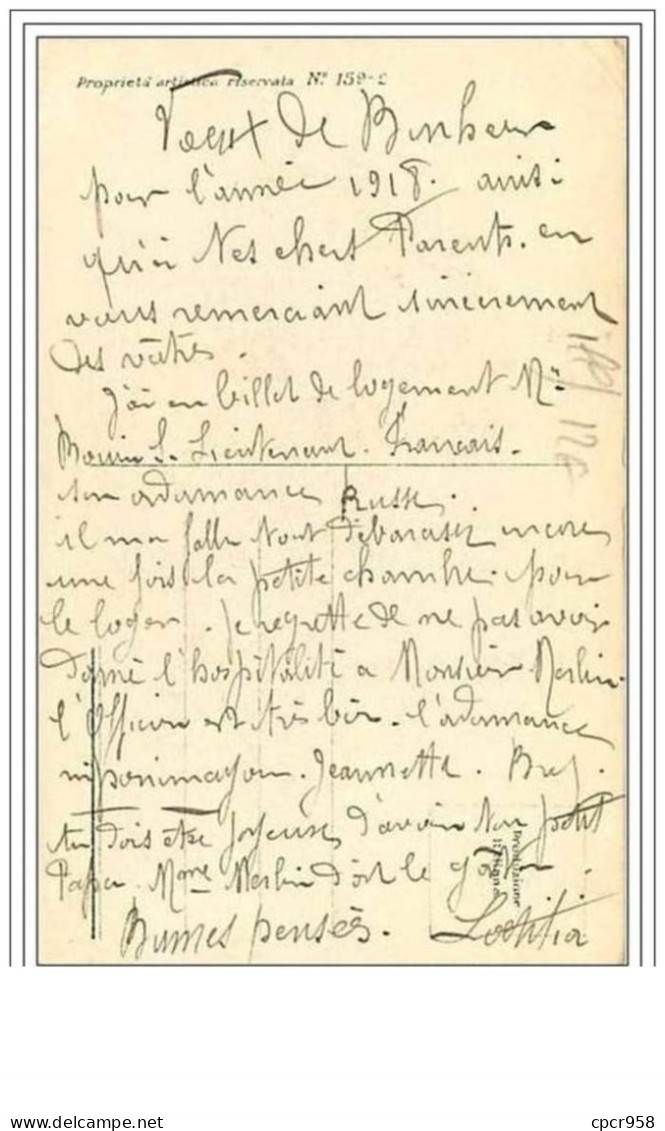 Proprietà artistica riservata Nº 159-2
Voeux de Bonheur
pour l'année 1918. ainsi
qu'à Nes chers Parents. en
vous remerciant sincèrement
des vôtres.
J'ai en billet de logement Mr
S. Lieutenant. Français.
son ordonance Russe.
il ma fallu tout débarasez encore
une fois la petite chambre. pour
le loger. je regrette de ne pas avoir
donné l'hospitalité a Monsieur Merlin.
l'Officier est très bien. l'ordonance
Jeannette. Bref.
tu dois etre joyeuse d'avoir ton petit
Papa. Mme Merlin doit le
Bonnes pensés. Loetitia
Produzione
cpcr958